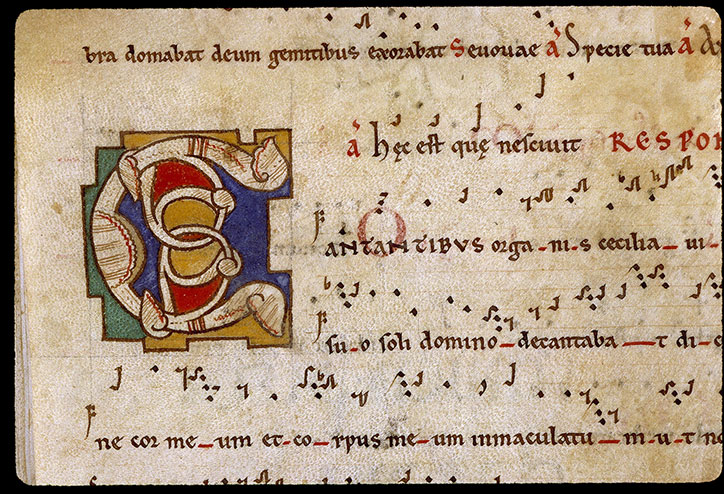 bra domabat deum gemitibus exorabat Seuouae a Specie tua a
a hęc est quę nesciuit RESPO
CANTANTIBVS orga-ni-s cecilia-ui-
su-o soli domino-decantaba-t di-
ne cor me-um et-co-rpus me-um inmaculatu-m-u-t no